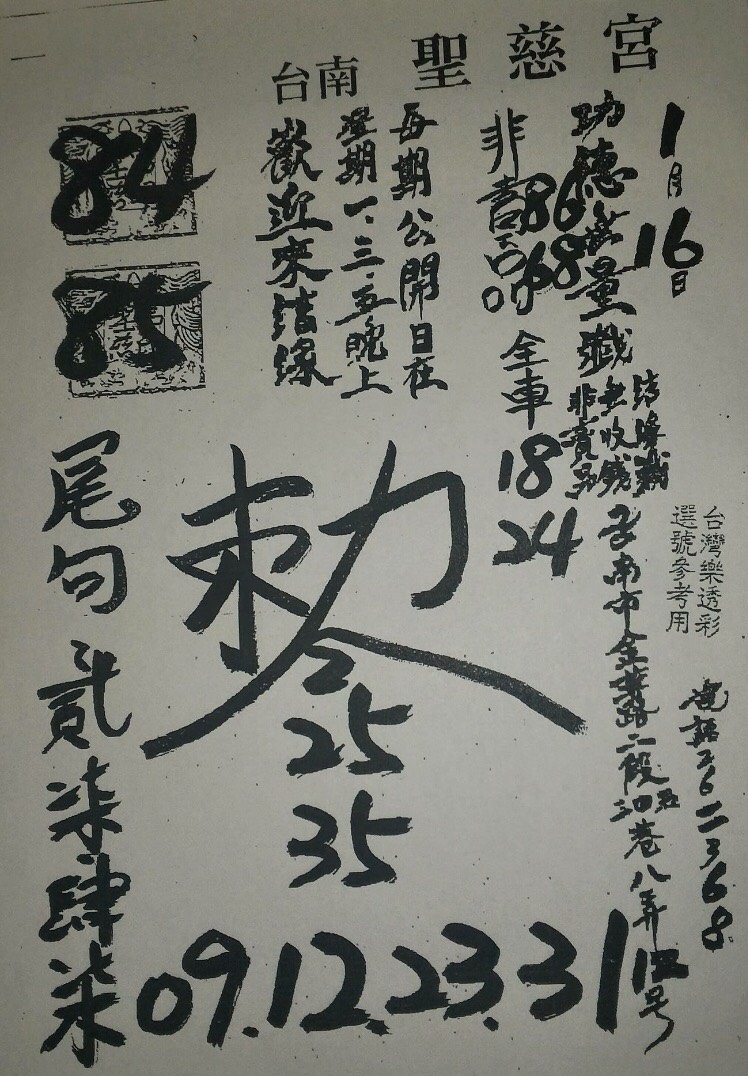 台南 聖慈宮
1月16日
功德無量
結緣
無收錢
非賣品
非賣品
86
68
全車
18
24
每期公開日在
星期一、三、五晚上
歡迎來結緣
84
85
台灣樂透彩
選號參考用
電話2622368
台南市金華路二段
巷八弄
号
敕
2
25
35
尾句貳柒肆柒
09.12.23.31